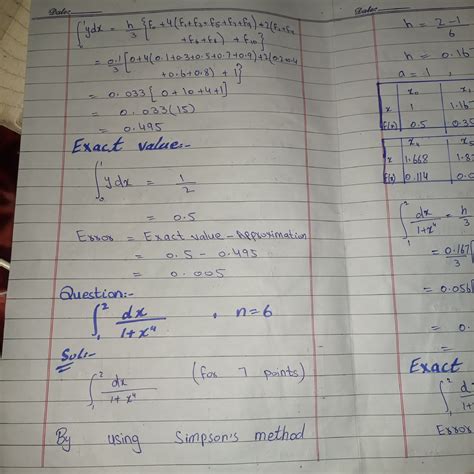 Date:
∫₀¹ydx = h/3 {f₀+4(f₁+f₃+f₅+f₇+f₉)+2(f₂+f₄
+f₆+f₈) + f₁₀}
= 0.1/3 [0+4(0.1+0.3+0.5+0.7+0.9)+2(0.2+0.4
+0.6+0.8) + 1]
= 0.033[0+10+4+1]
= 0.033(15)
= 0.495
Exact value:-
∫₀¹ ydx = 1/2
= 0.5
Error = Exact value - Approximation
= 0.5 - 0.495
= 0.005
Question:-
∫₁² dx/1+x⁴ , n=6
Sol:-
∫₁² dx/1+x⁴ (for 7 points)
By using Simpson's method
Date:
h = 2-1/6
h = 0.16
a = 1,
x₀ x₁
x 1 1.16
f(x) 0.5 0.35
x 1.668 1.8
f(x) 0.114 0.0
∫₁² dx/1+x⁴ = h/3
= 0.167/3
= 0.056
= 0.
Exact
∫₁² d
1+
Error